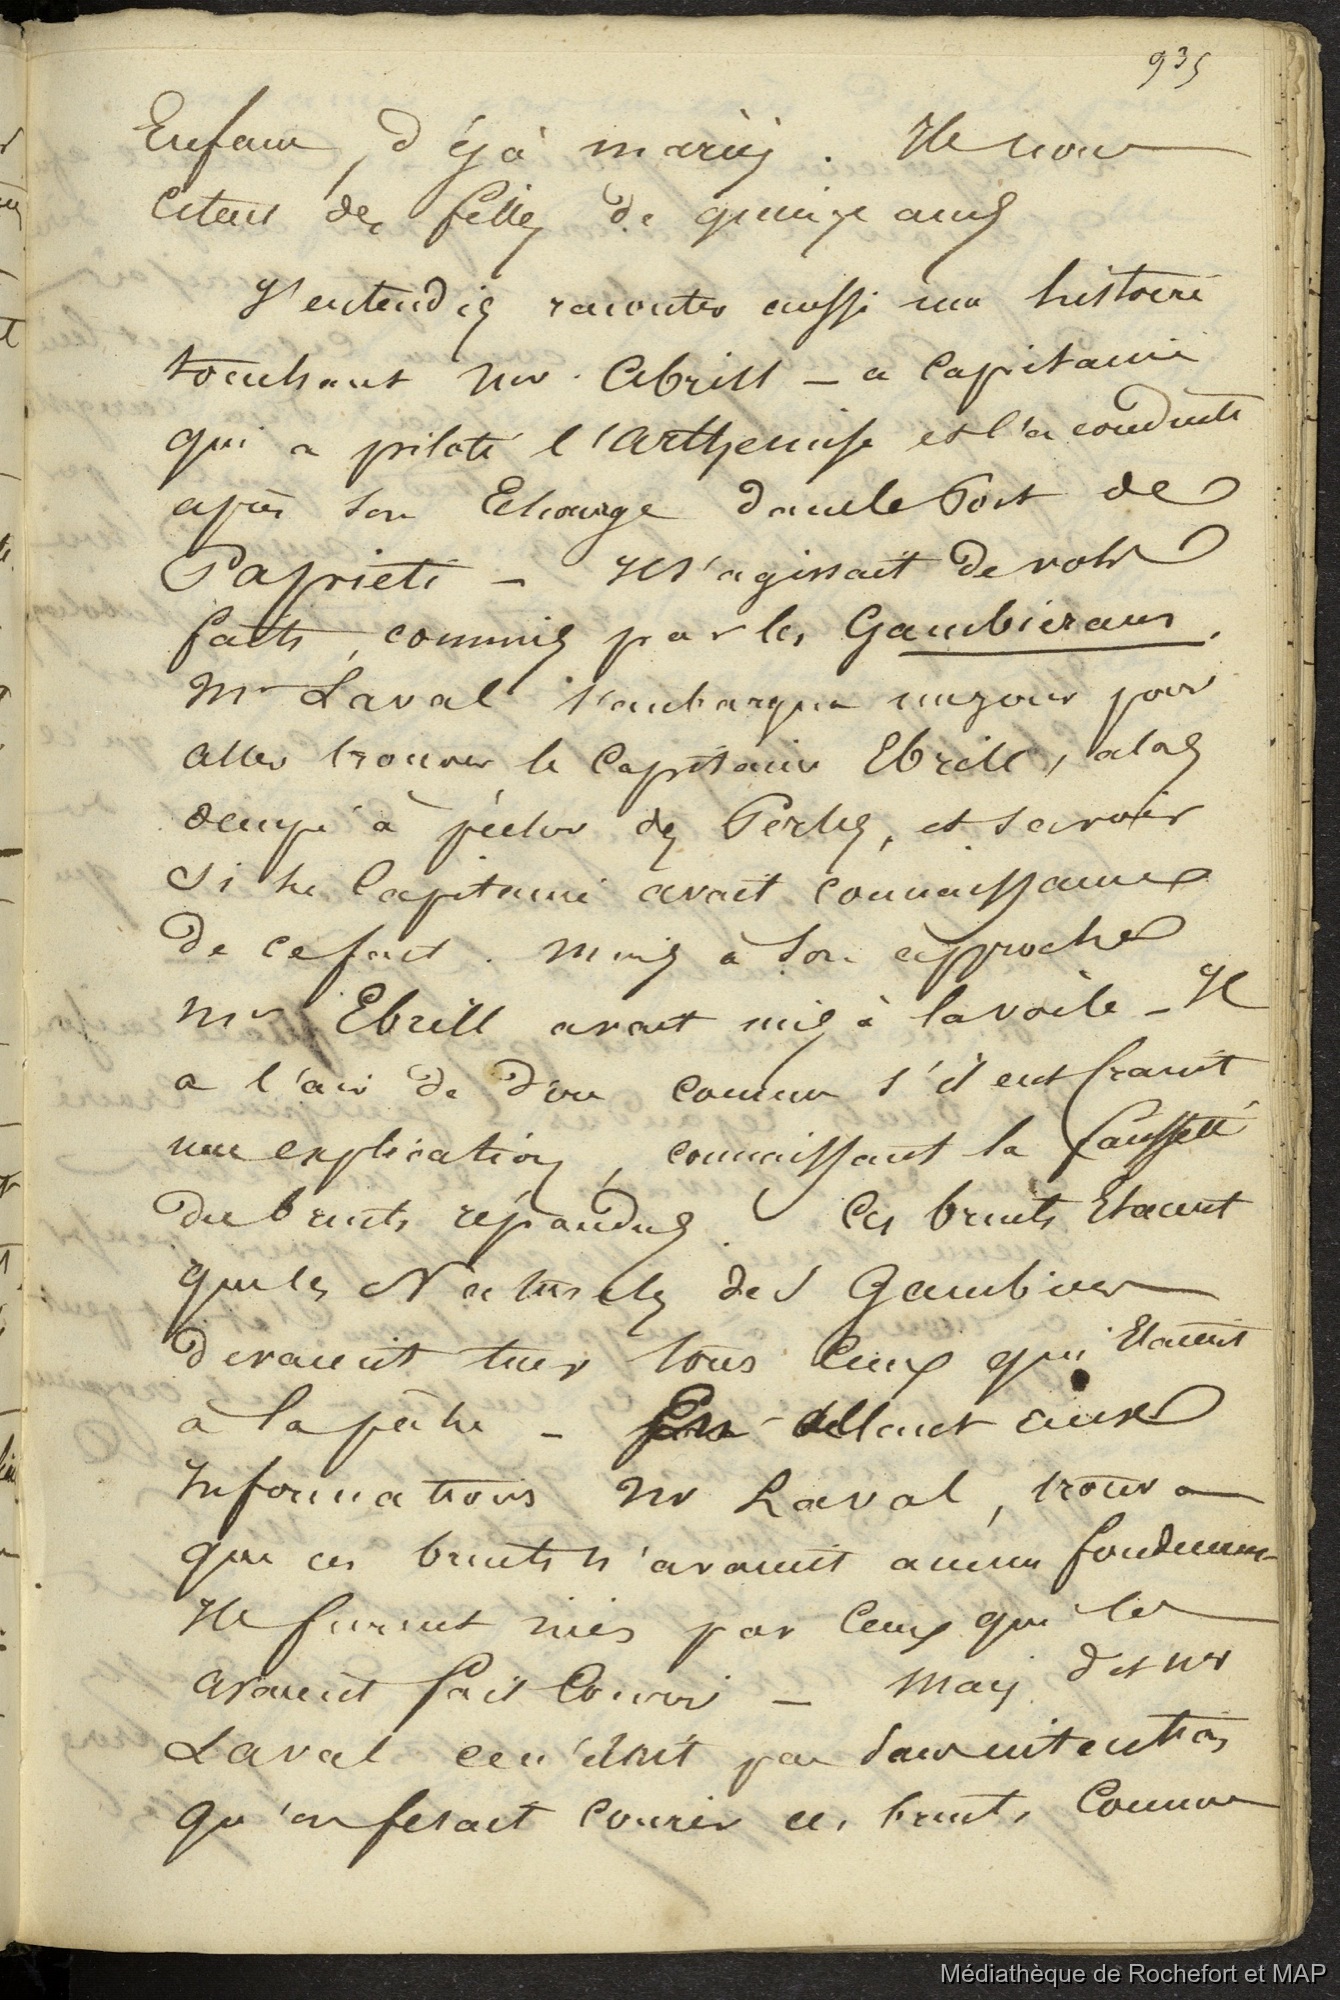 935
Enfans, déjà mariés. Ils nous
citent des filles de quinze ans
J'entendis raconter aussi une histoire
touchant Mr. Ebrill - a Capitaine
qui a piloté l'Arthemise et l'a conduite
après son Echouage dans le Port de
Papriété - Il s'agissait de vols
faits, commis par les Gambiérans.
Mr Laval s'embarqua un jour pour
aller trouver le Capitaine Ebrill, alors
occupé à pêcher des Perles, et savoir
si le Capitaine avait connaissance
de ce fait. Mais à son approche
Mr Ebrill avait mis à la voile - Il
a l'air de d'ou comme s'il eut craint
une explication, connaissant la fausseté
des bruits répandus. Ces bruits Etaient
que les Naturels des Gambier
devaient tuer tous ceux qui Etaient
à la pêche - En allant aux
Informations Mr Laval, trouva
que ces bruits n'avaient aucun fondement
Ils furent niés par ceux qui les
avaient fait Courir - Mais dit Mr
Laval ce n'était pas sans intention
qu'on fesait courir ces bruits Comme
Médiathèque de Rochefort et MAP